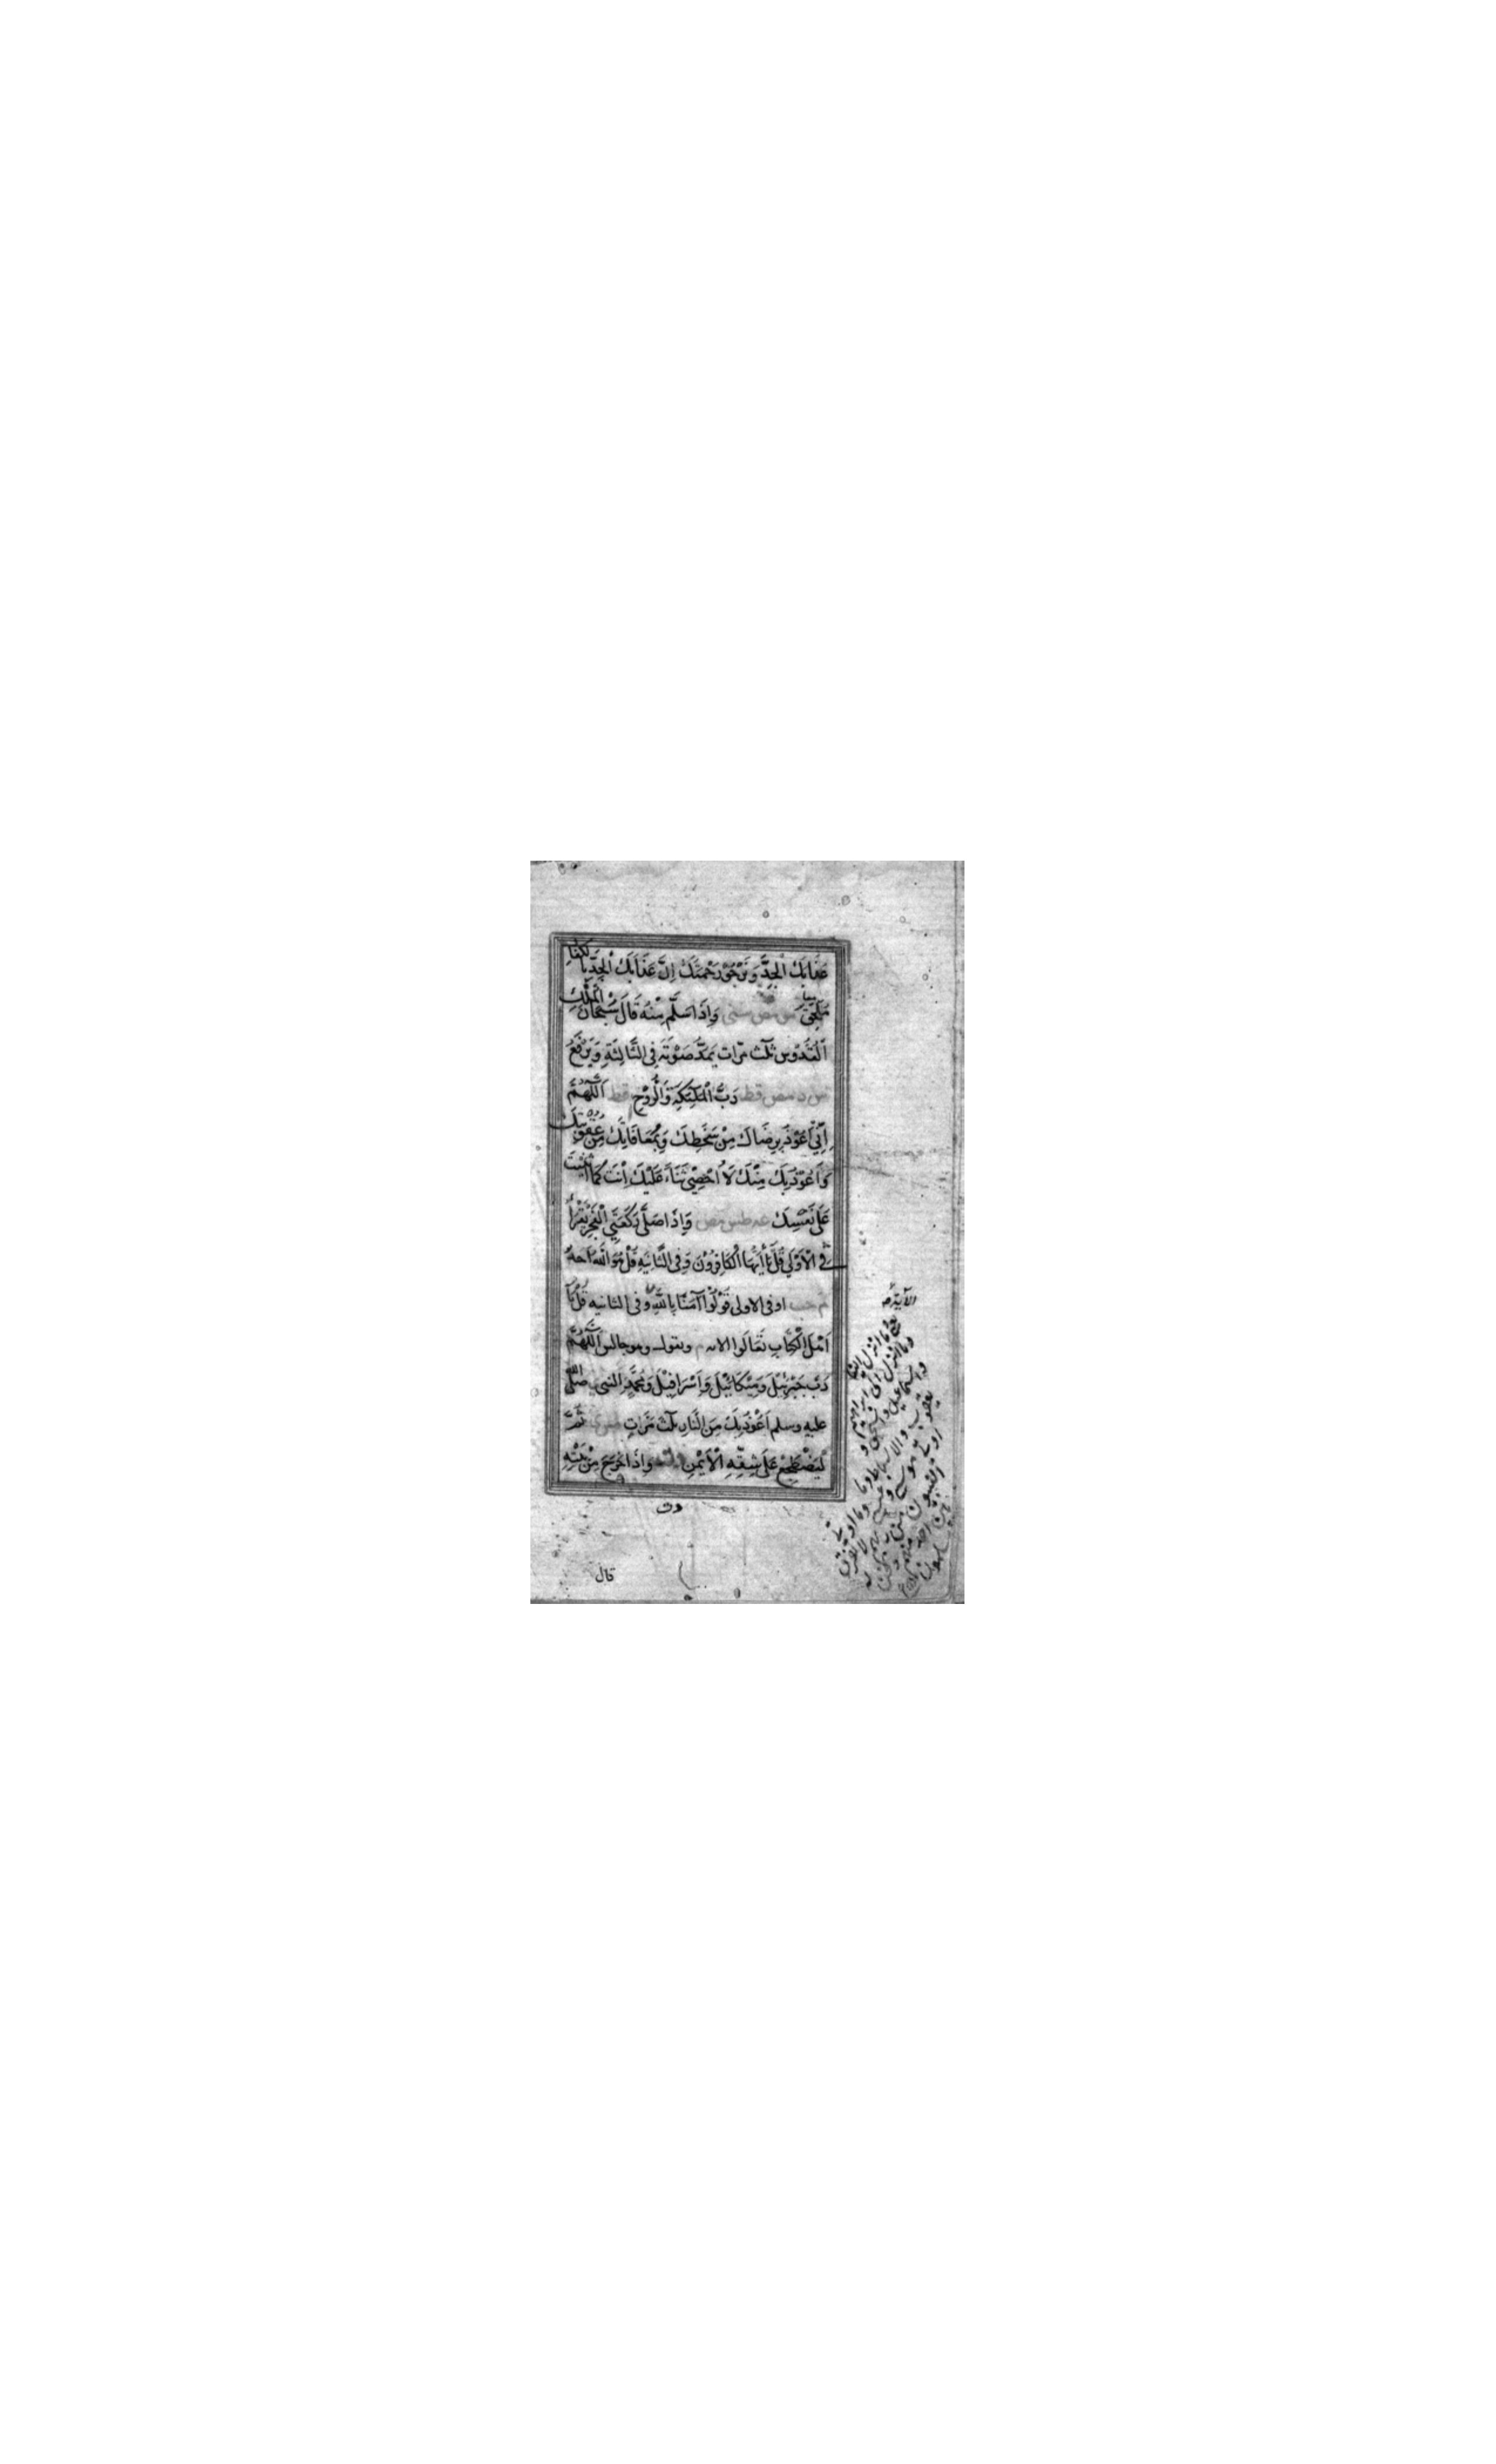 عَذَابَكَ الْجِدَّ وَنَرْجُوْ رَحْمَتَكَ اِنَّ عَذَابَكَ الْجِدَّ بِالْكُفَّارِ
مُلْحِقٌ مص سنى وَاِذَا سَلَّمَ مِنْهُ قَالَ سُبْحَانَ الْمَلِكِ
الْقُدُّوْسِ ثلٰث مرّات يَمُدُّ صَوْتَهٗ فِى الثَّالِثَةِ وَيَرْفَعُ
س د مص قط رَبُّ الْمَلٰئِكَةِ وَالرُّوْحِ قط اَللّٰهُمَّ
اِنِّىْ اَعُوْذُ بِرِضَاكَ مِنْ سَخَطِكَ وَبِمُعَافَاتِكَ مِنْ عُقُوْبَتِكَ
وَاَعُوْذُ بِكَ مِنْكَ لَا اُحْصِىْ ثَنَاءً عَلَيْكَ اَنْتَ كَمَا اَثْنَيْتَ
عَلٰى نَفْسِكَ عه طس مص وَاِذَا صَلّٰى رَكْعَتَىِ الْفَجْرِ يَقْرَأُ
فِى الْاُوْلٰى قُلْ يٰاَيُّهَا الْكَافِرُوْنَ وَفِى الثَّانِيَةِ قُلْ هُوَ اللّٰهُ اَحَدٌ
م حب او فى الاولى قُوْلُوْا آمَنَّا بِاللّٰهِ وفى الثانيه قُلْ يَا
اَهْلَ الْكِتَابِ تَعَالَوْا الايه م ويقول وهو جالس اَللّٰهُمَّ
رَبَّ جِبْرَئِيْلَ وَمِيْكَائِيْلَ وَاِسْرَافِيْلَ وَمُحَمَّدٍ النبى صَلَّى اللّٰه
عليه وسلم اَعُوْذُ بِكَ مِنَ النَّارِ ثلٰث مَرّاتٍ مس ى ثُمَّ
لْيَضْطَجِعْ عَلٰى شِقِّهِ الْاَيْمَنِ د ت وَاِذَا خَرَجَ مِنْ بَيْتِهِ
د ت
قال
الآية
وما انزل الينا
وما انزل الى ابراهيم
واسماعيل واسحق و
يعقوب والاسباط وما
اوتى موسى وعيسى وما اوتى
النبيون من ربهم لا نفرق
بين احد منهم ونحن له
مسلمون